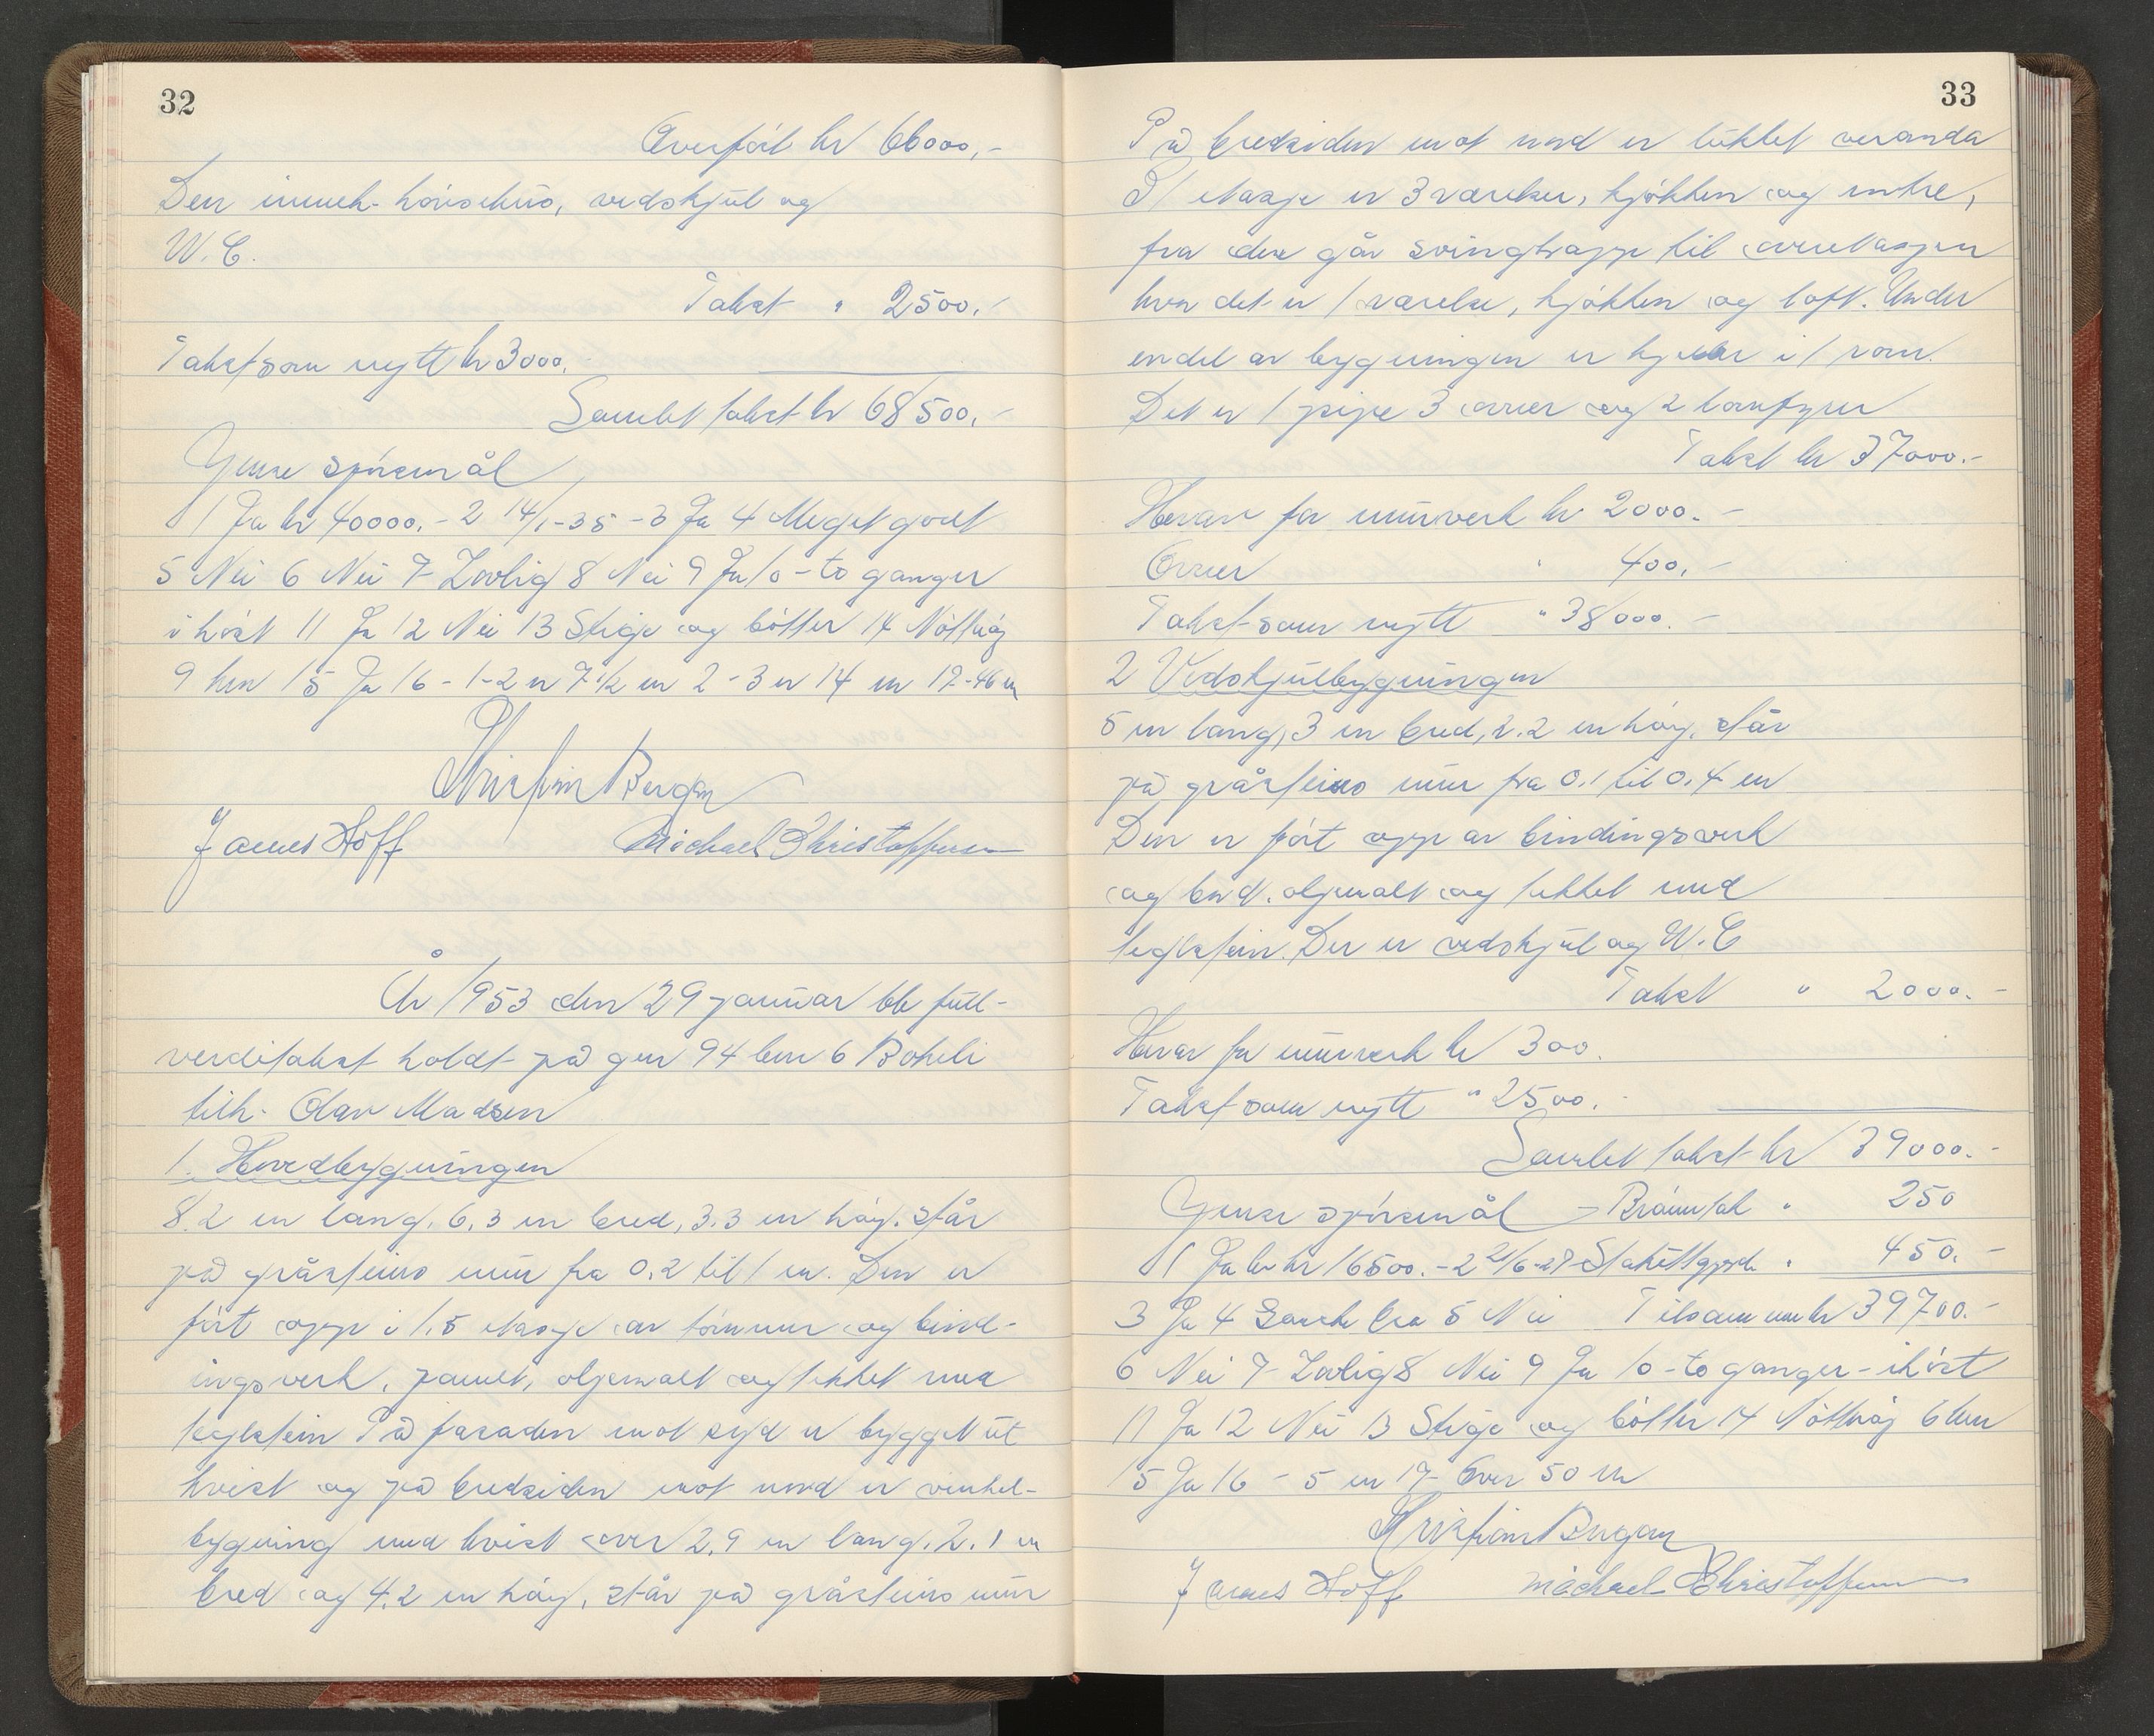 32
Overført kr 66000,-
Den inneh. hönsehus, vedskjul og
W.C.
Takst " 2500,-
Takst som nytt kr 3000,-
Samlet takst kr 68500,-
Gense spörsmål
1 Ja kr 40000,- 2 14/1-35 - 3 Ja 4 Meget godt
5 Nei 6 Nei 7 Lovlig 8 Nei 9 Ja 10 - to ganger
i höst 11 Ja 12 Nei 13 Stige og bötter 14 Nötteröy
9 km 15 Ja 16 - 1-2 er 7 1/2 m 2-3 er 14 m 17-46 m
Kristian Bergan
James Hoff Michael Christoffersen
År 1953 den 29 januar ble full-
verditakst holdt på gnr 94 bnr 6 Boheli
tilh. Olav Madsen
1. Hovedbygningen
8.2 m lang, 6,3 m bred, 3.3 m höy. står
på gråsteins mür fra 0.2 til 1 m. Den er
fört opp i 1,5 etasje av tömmer og bind-
ingsverk, panelt, oljemalt og tekket med
teglstein På fasaden mot syd er bygget üt
kvist og på bredsiden mot nord er vinkel-
bygning med kvist over 2.9 m lang. 2.1 m
bred og 4.2 m höy, står på gråsteins mür
33
På bredsiden mot nord er lükket veranda
I 1 etasje er 3 værelser, kjökken og entre,
fra den går svingtrapp til overetasjen
hvor det er 1 værelse, kjökken og loft. Under
endel av bygningen er kjeller i 1 rom.
Det er 1 pipe 3 ovner og 2 komfyrer
Takst kr 37000.-
Herav for mürverk kr 2000.-
Ovner " 400,-
Takst som nytt " 38000.-
2 Vedskjülbygningen
5 m lang, 3 m bred, 2.2 m höy. står
på gråsteins mür fra 0,1 til 0,4 m
Den er fört opp av bindingsverk
og bord. oljemalt og tekket med
teglstein. Der er vedskjül og W.C
Takst " 2000.-
Herav for mürverk kr 300.
Takst som nytt " 2500.-
Samlet takst kr 39000.-
Gense spörsmål - " 250
1 Ja kr 16500.- 2 2/6-27 Stakittgjerde " 450.-
3 Ja 4 bra 5 Nei Tilsammen kr 39700.-
6 Nei 7 Lovlig 8 Nei 9 Ja 10 - to ganger - i höst
11 Ja 12 Nei 13 Stige og bötter 14 Nötteröy 6 km
15 Ja 16 - 5 m 17 - Over 50 m
Kristian Bergan
James Hoff Michael Christoffersen